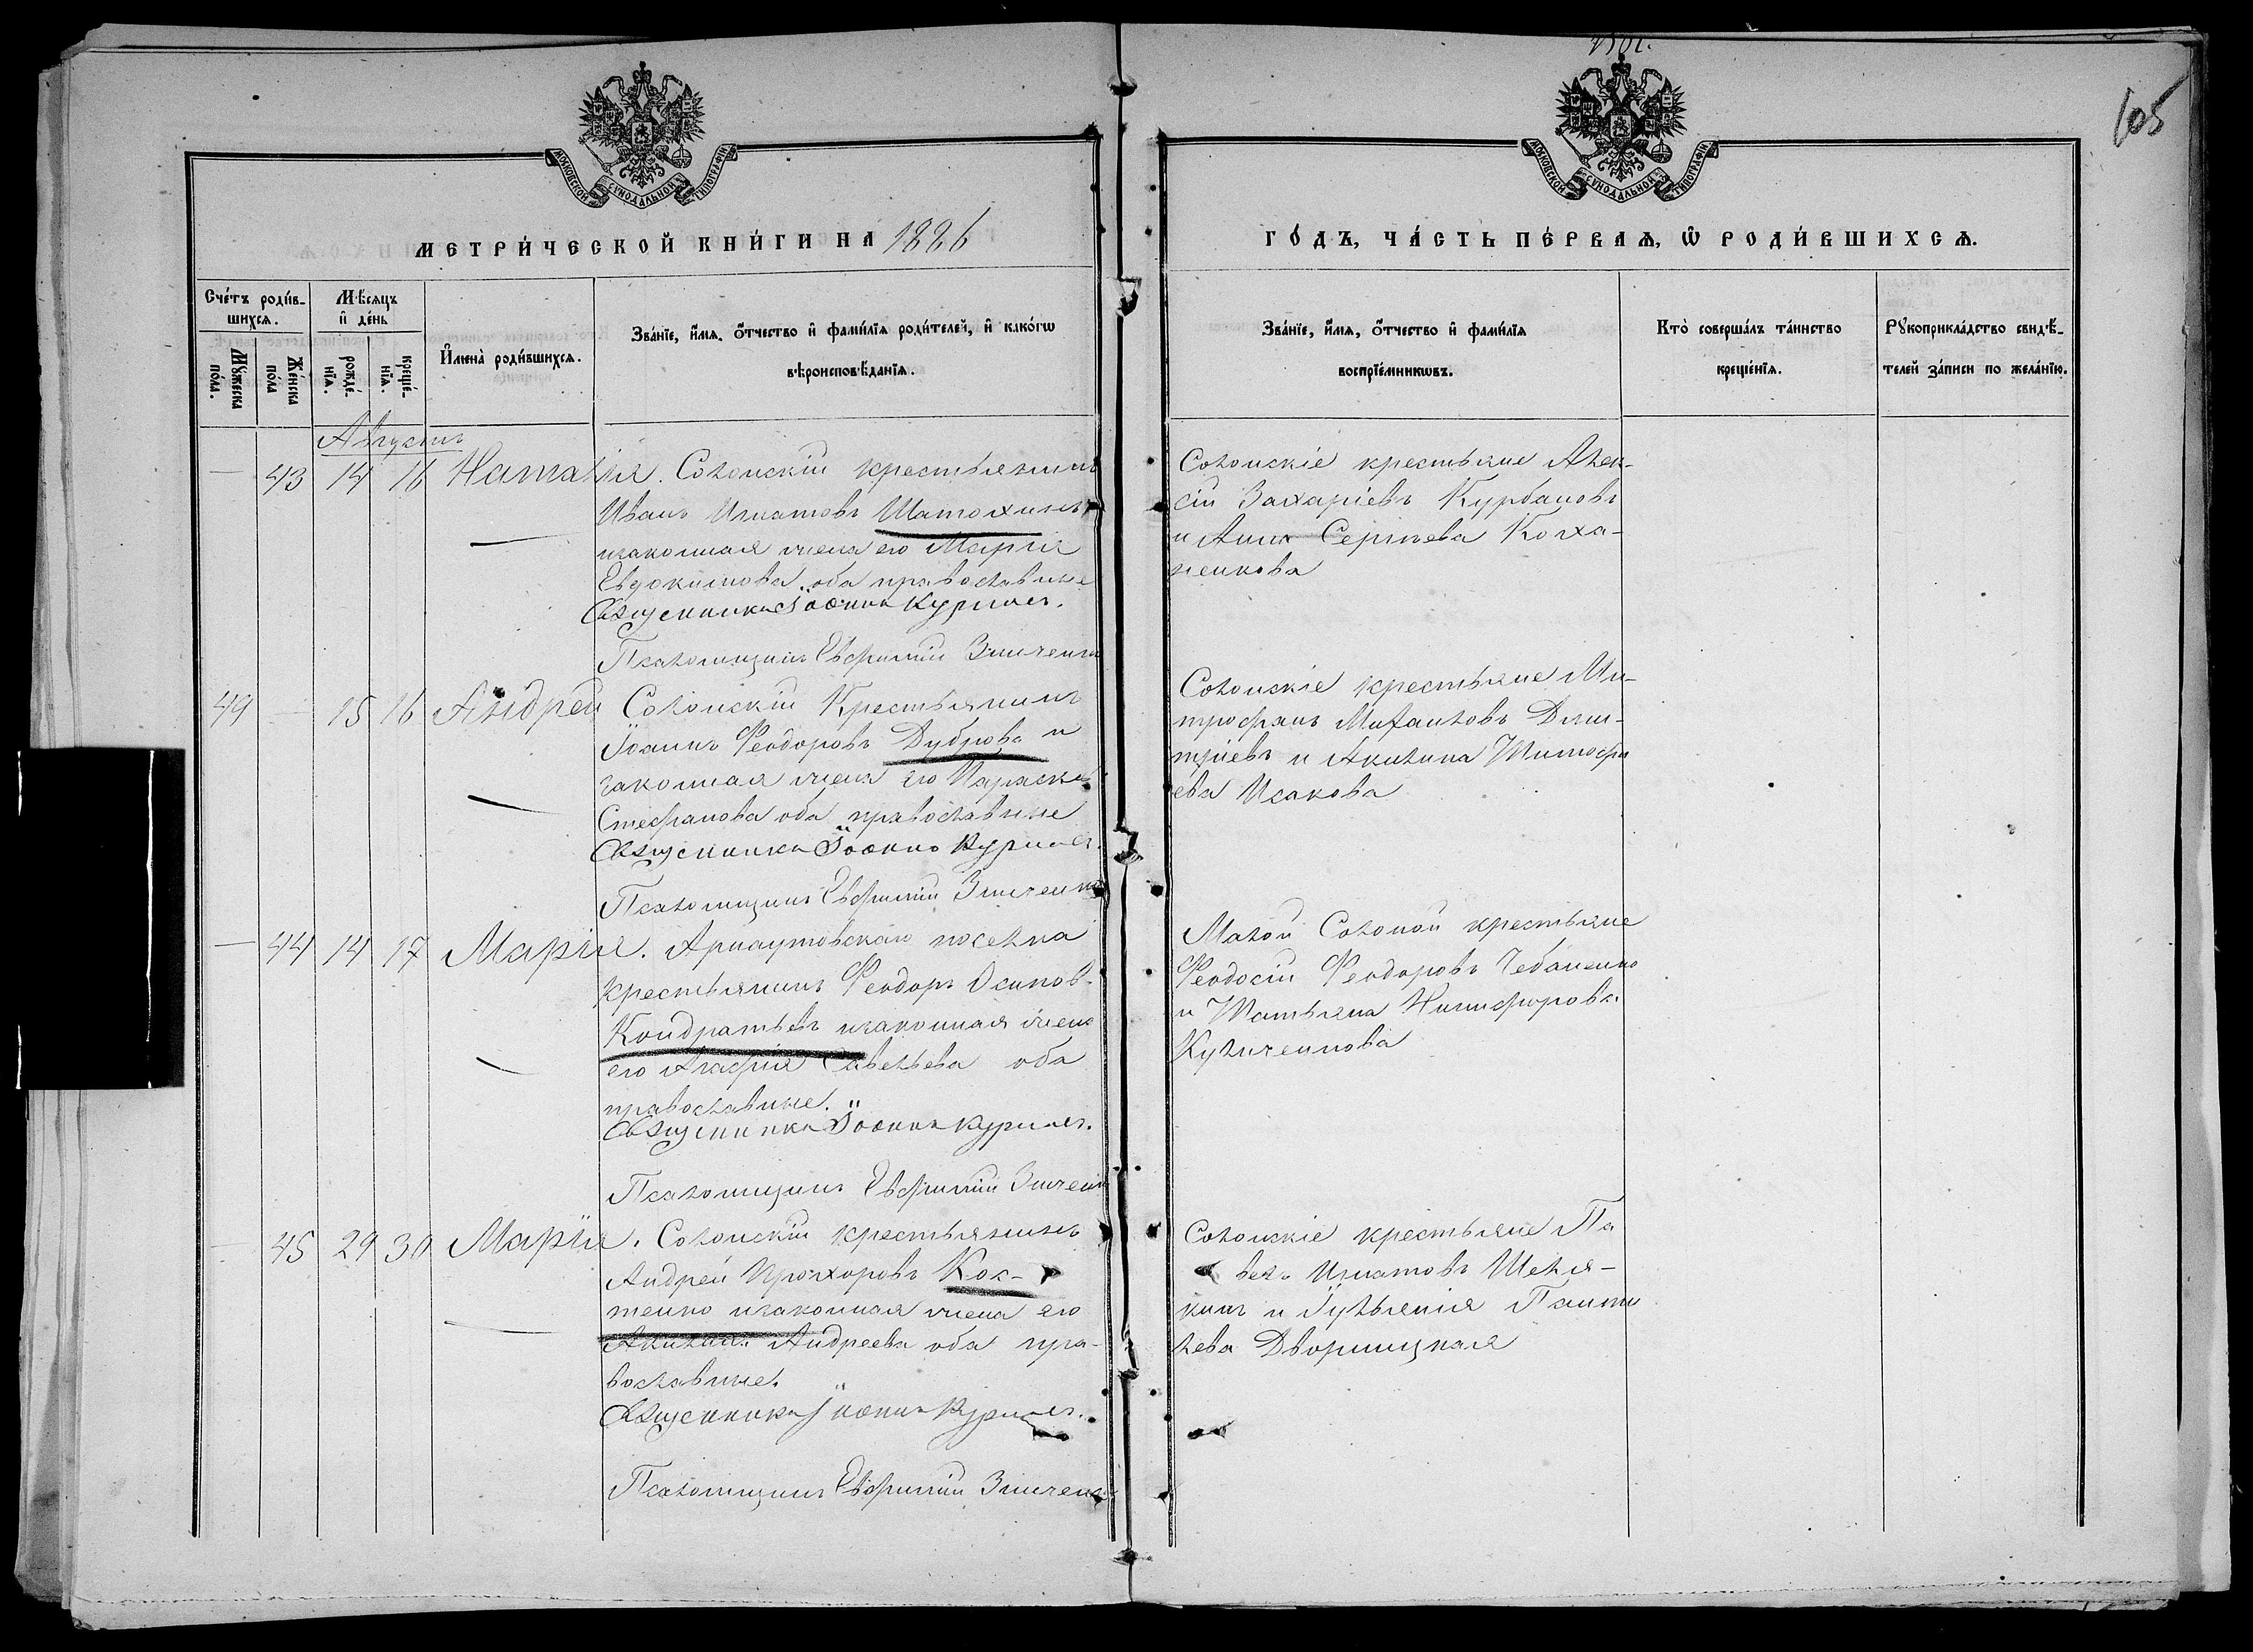 105
МОСКОВСКОЙ СѴНОДАЛЬНОЙ ТИПОГРАФІИ
МОСКОВСКОЙ СѴНОДАЛЬНОЙ ТИПОГРАФІИ
МЕТРИ́ЧЕСКОЙ КНИ́ГИ НА 1886
ГО́ДЪ, ЧА́СТЬ ПЕ́РВАѦ, Ѡ РОДИ́ВШИХСѦ.
Сче́тъ роди́в-
шихсѧ.
Мꙋ́жеска
по́ла.
Же́нска
по́ла
М́ѣсѧцъ
и҆ де́нь
рожде́-
нїѧ.
креще́-
нїѧ.
И҆мена̀ роди́вшихсѧ.
Зва́нїе, и҆́мѧ, ѻ҆́тчество и҆ фами́лїѧ роди́телей, и҆ како́гѡ
вѣроисповѣ́данїѧ.
Зва́нїе, и҆́мѧ, ѻ҆́тчество и҆ фами́лїѧ
воспрїе́мникѡвъ.
Кто̀ соверша́лъ та́инство
креще́нїѧ.
Рꙋкоприкла́дство свидѣ́-
телей за́писи по жела́нїю.
Августъ
— 43 14 16 Наталія. Солонскій крестьянинъ
Иванъ Игнатовъ Шатохинъ
изаконная жена его Марія
Евдокимова. оба православные
Священникъ Іоаннъ Курилов.
Псаломщикъ Евфимій Зинченко
Солонскіе крестьяне Алек-
сій Захаріевъ Курбановъ
и Анна Сергіева Колха-
ненкова
49 — 15 16 Андрей Солонскій Крестьянинъ
Іоаннъ Феодоровъ Дуброва и
законная жена его Параскев
Стефанова оба православные
Священникъ Іоаннъ Курилов.
Псаломщикъ Евфимій Зинченко
Солонскіе крестьяне Ми-
трофанъ Михаиловъ Дими-
тріевъ и Акилина Тимофе
ева Исакова
— 44 14 17 Марія. Арнаутовскаго поселка
крестьянинъ Феодоръ Осипов.
Кондратьевъ изаконная жена
его Агафія Савельева оба
православные.
Священникъ Іоаннъ Курилов.
Псаломщикъ Евфимій Зинченко
Малой Солоной крестьяне
Феодосій Феодоровъ Чебаненко
и Татьяна Никифорова
Кузиченкова
— 45 29 30 Марія. Солонскій крестьянинъ
Андрей Прохоровъ Кос-
тенко изаконная жена его
Акилина Андреева оба пра-
вославные.
Священникъ Іоаннъ Курилов.
Псаломщикъ Евфимій Зинченко
Солонскіе крестьяне Па
велъ Игнатовъ Шеля-
кинъ и Іульянія Панте
лева Дворницкая